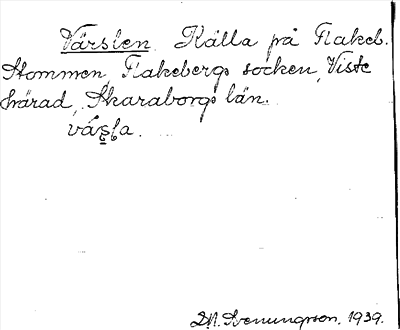 Vårslen. Källa på Flakeb.
Stommen, Flakebergs socken, Viste
härad, Skaraborgs län.
D.N. Svenungsson, 1939.